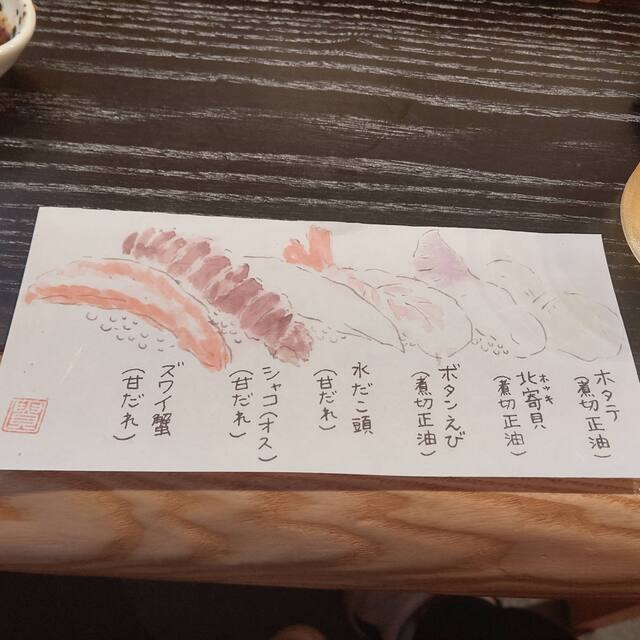 ホタテ
(煮切正油)
北寄貝
ホッキ
(煮切正油)
ボタンえび
(煮切正油)
水だこ頭
(甘だれ)
シャコ(オス)
(甘だれ)
ズワイ蟹
(甘だれ)